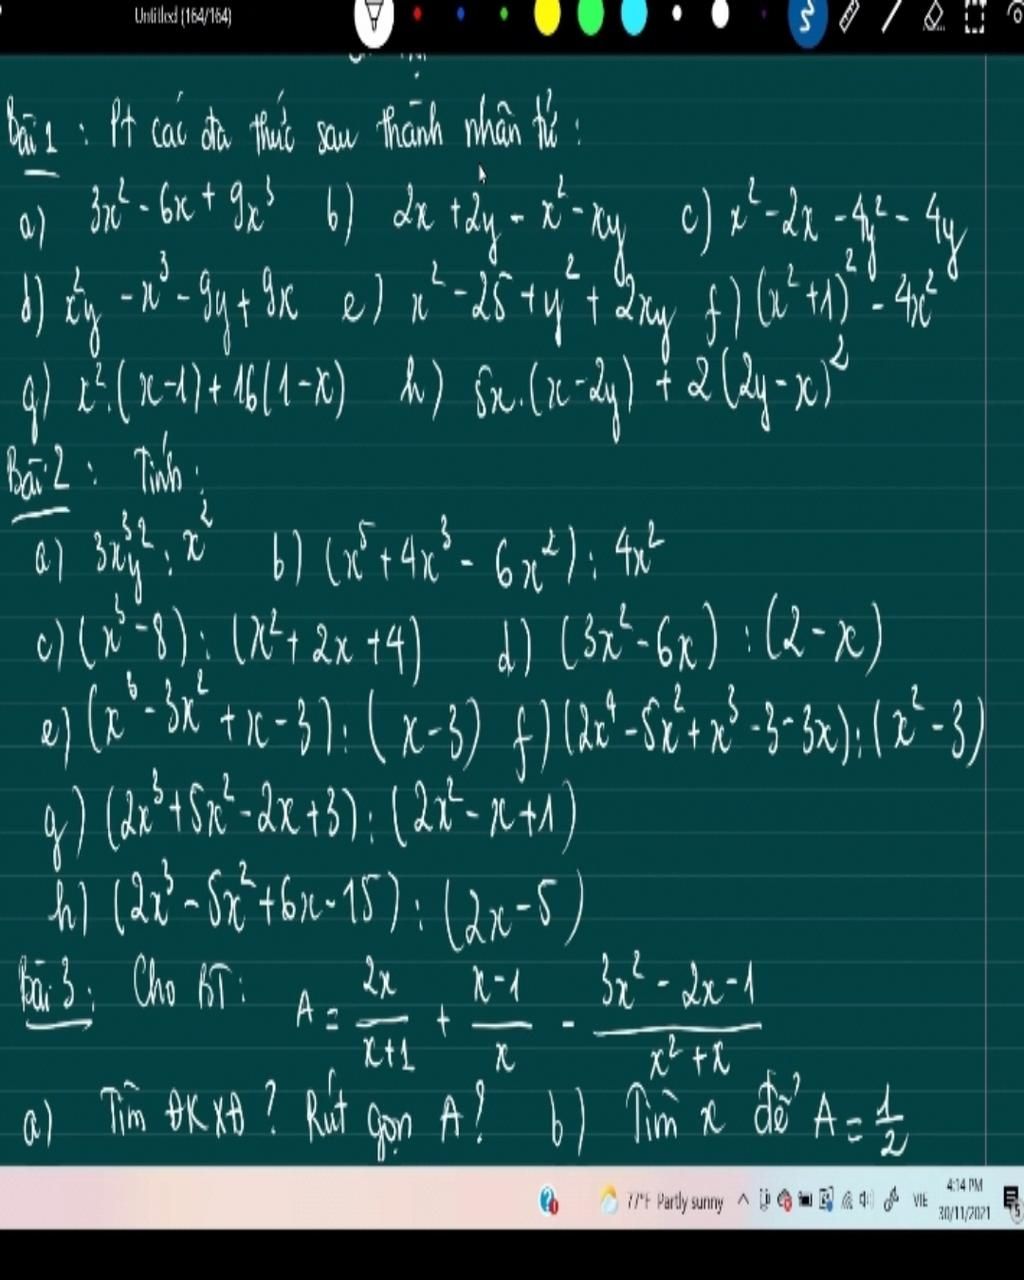 Untitled (164/164)
Bài 1 : Pt các đa thức sau thành nhân tử :
a) 3x² - 6x + 9x³ b) 2x + 2y - x² - xy c) x² - 2x - 4y² - 4y
d) x²y - x³ - 9y + 9x e) x² - 25 + y² + 2xy f) (x² + 1)² - 4x²
g) x².(x - 1) + 16(1 - x) h) 5x.(x - 2y) + 2(2y - x)²
Bài 2 : Tính :
a) 3x³y² : x² b) (x⁵ + 4x³ - 6x²) : 4x²
c) (x³ - 8) : (x² + 2x + 4) d) (3x² - 6x) : (2 - x)
e) (x³ - 3x² + x - 3) : (x - 3) f) (2x⁴ - 5x² + x³ - 3 - 3x) : (x² - 3)
g) (2x³ + 5x² - 2x + 3) : (2x² - x + 1)
h) (2x³ - 5x² + 6x - 15) : (2x - 5)
Bài 3 : Cho BT : A = 2x/(x+1) + (x-1)/x - (3x² - 2x - 1)/(x² + x)
a) Tìm ĐKXĐ ? Rút gọn A ? b) Tìm x để A = 1/2
77°F Partly sunny VIE 4:14 PM
30/11/2021 5